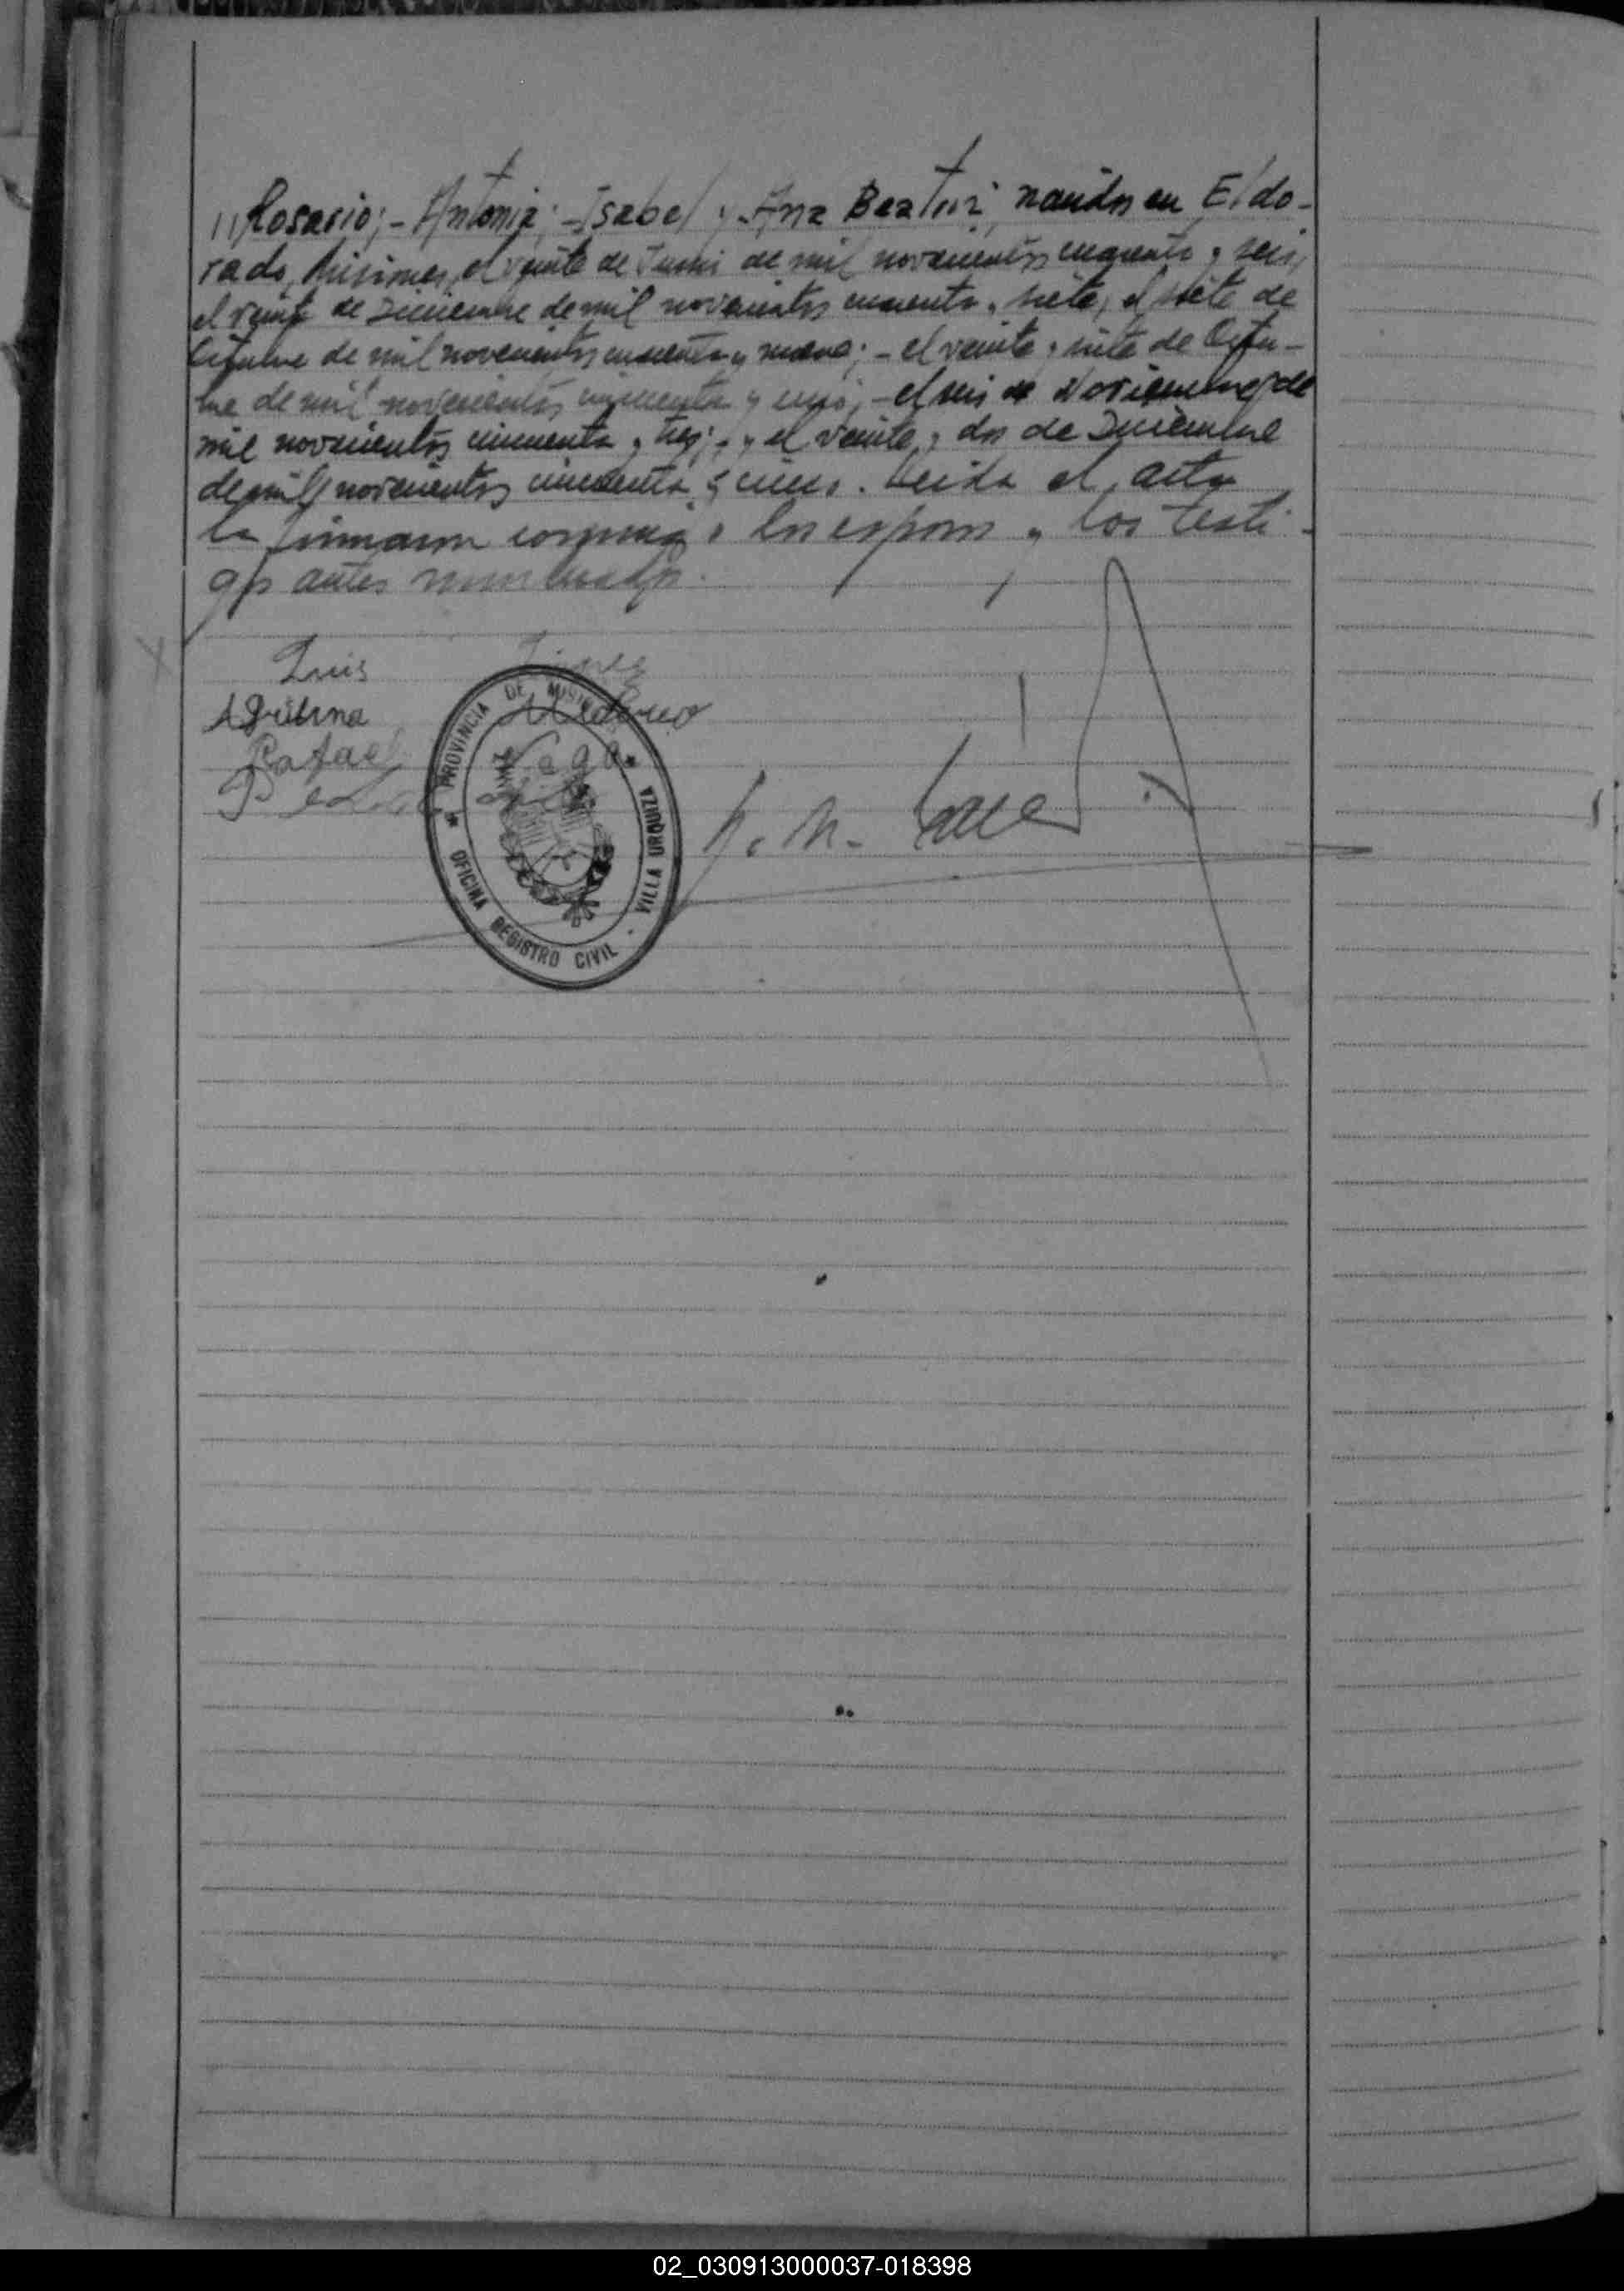 Rosario; - Antonia; - Isabel y Ana Beatriz, nacidos en Eldo-
rado, Misiones, el veinte de Junio de mil novecientos cuarenta y seis,
el veinte de Diciembre de mil novecientos cuarenta y siete, el siete de
Octubre de mil novecientos cuarenta y nueve; - el veinte y siete de Octu-
bre de mil novecientos cincuenta y uno; - el seis de Noviembre de
mil novecientos cincuenta y tres; - y el veinte y dos de Diciembre
de mil novecientos cincuenta y cinco. Leida el acta
la firmaron conmigo los esposos y los testi-
gos antes nombrados.
Luis
Rafael
PROVINCIA DE MISIONES
OFICINA REGISTRO CIVIL - VILLA URQUIZA
02_030913000037-018398